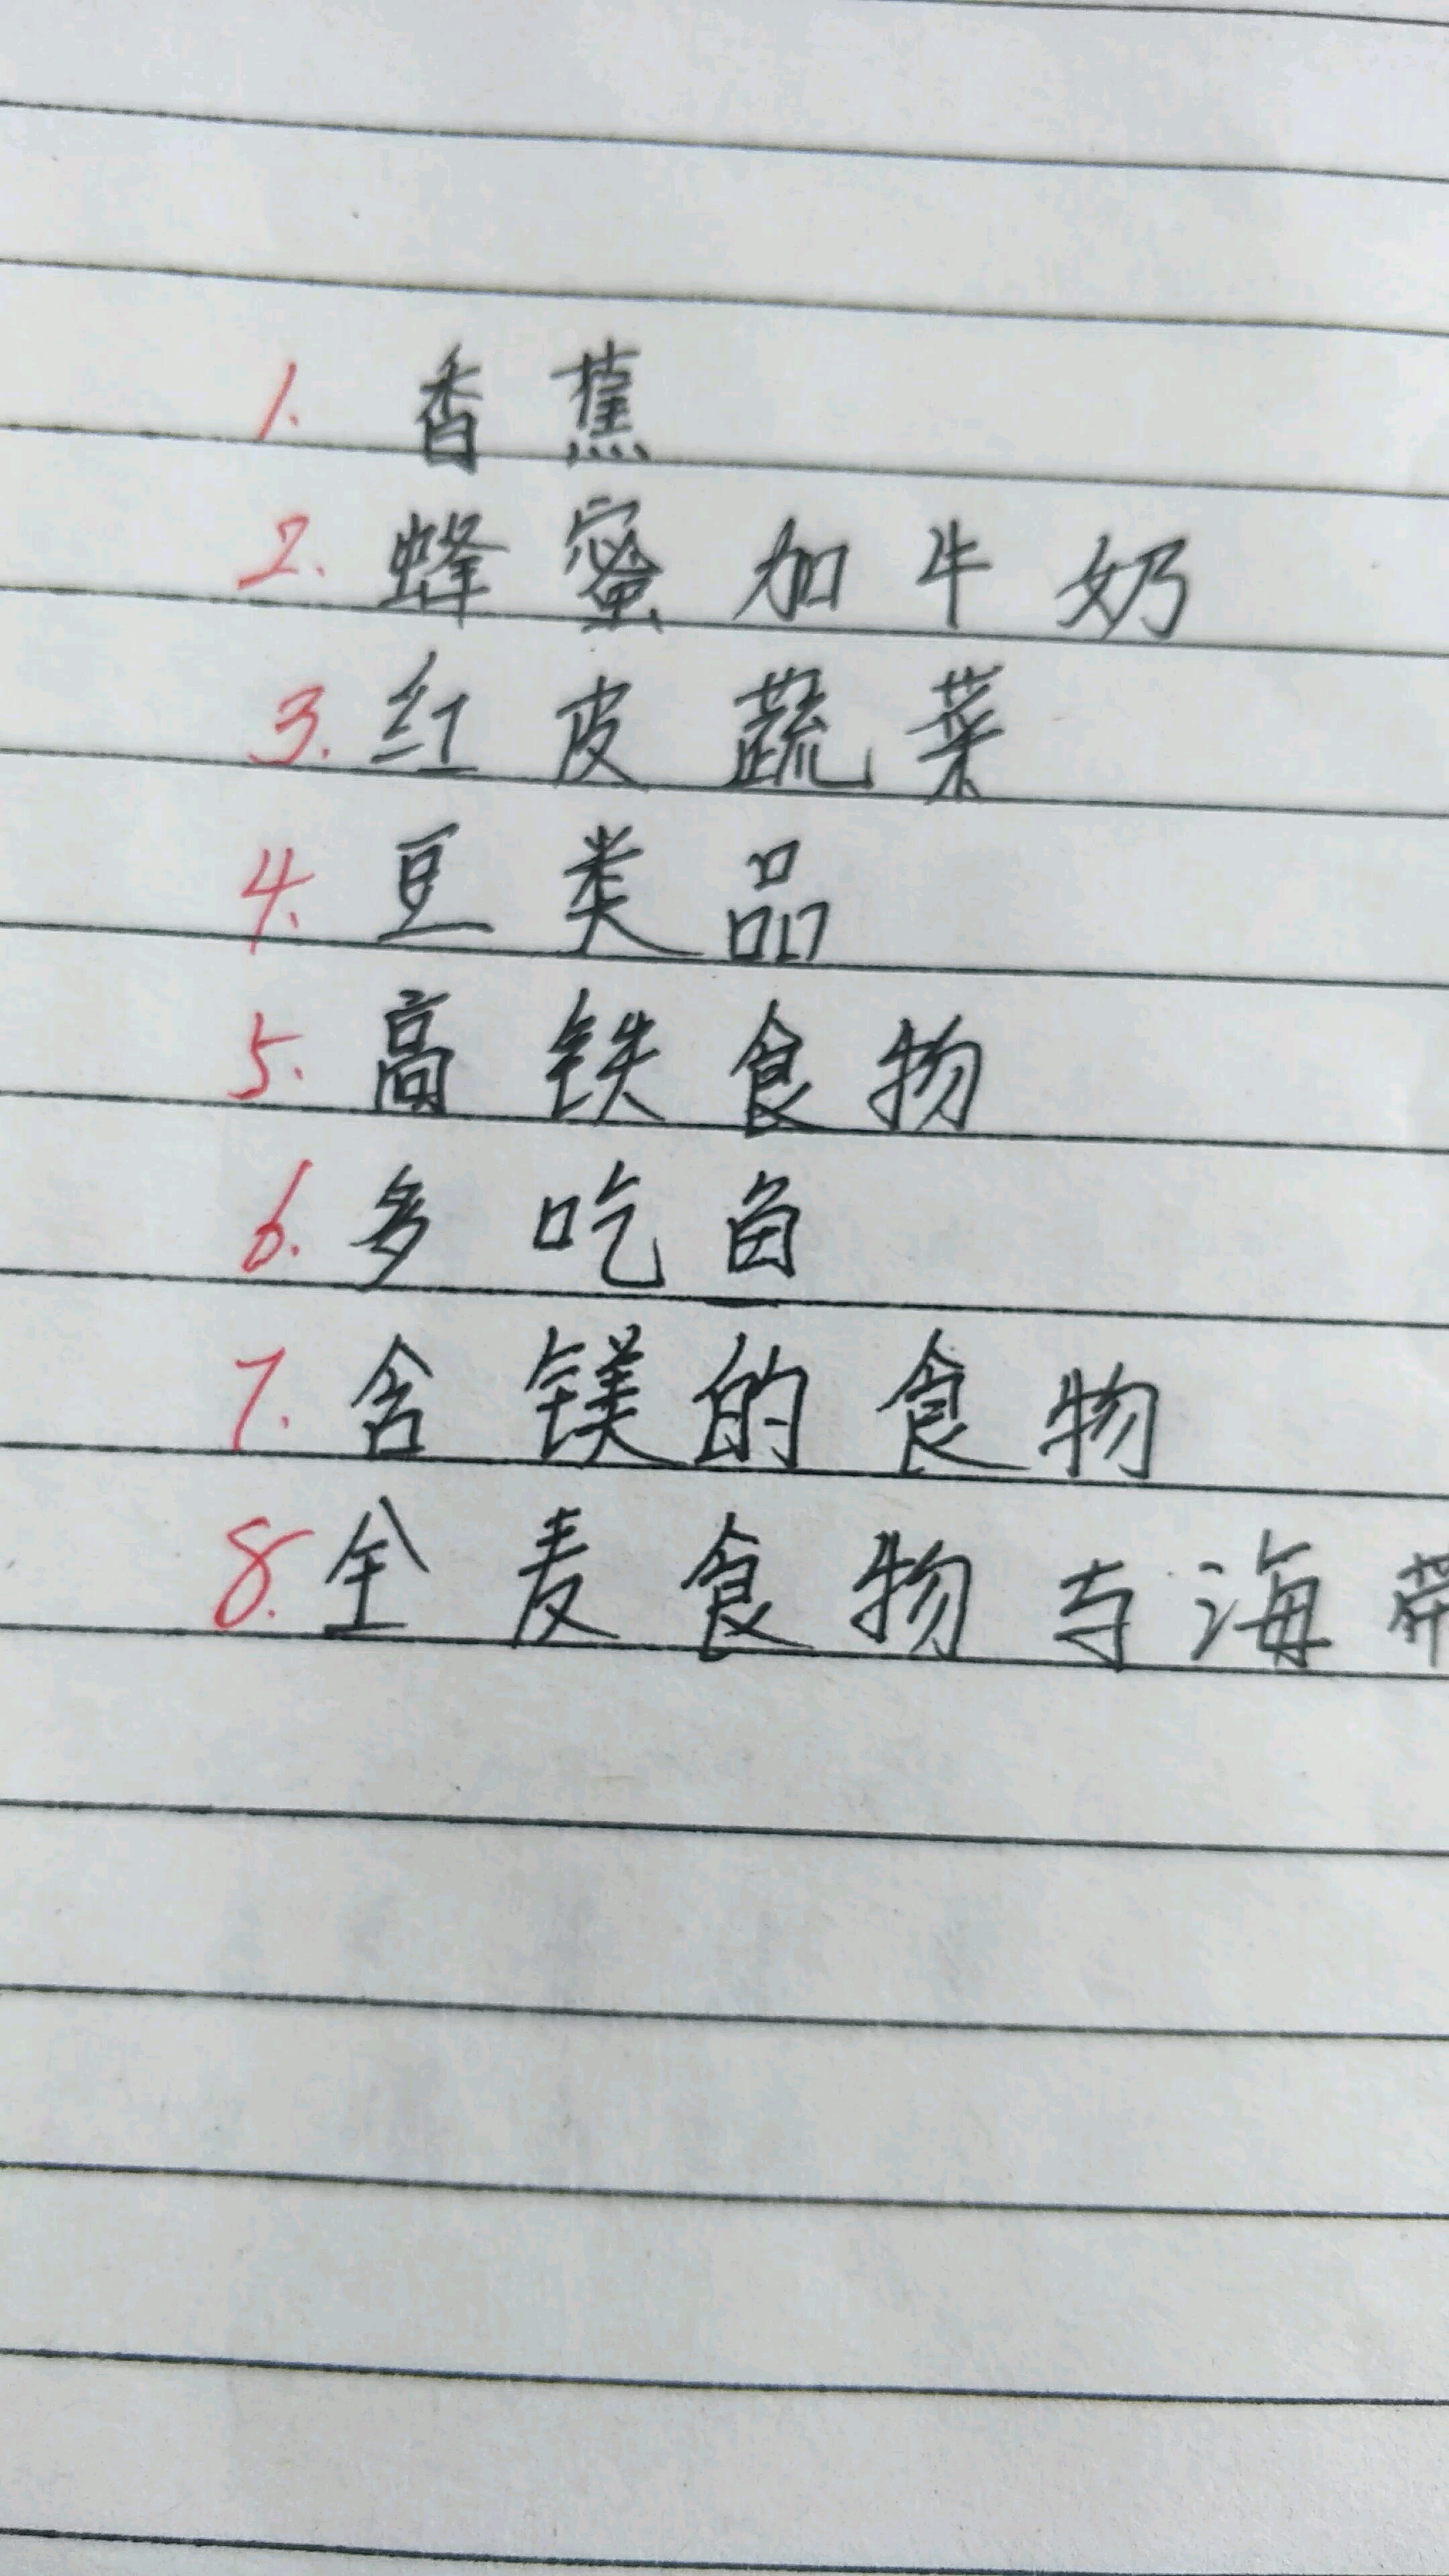 1. 香蕉
2. 蜂蜜加牛奶
3. 红皮蔬菜
4. 豆类品
5. 高铁食物
6. 多吃鱼
7. 含镁的食物
8. 全麦食物与海带